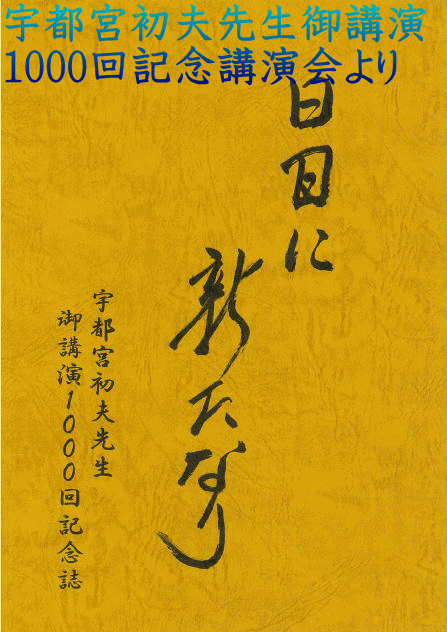 宇都宮初夫先生御講演
1000回記念講演会より
日日に
新たなり
宇都宮初夫先生
御講演1000回記念誌